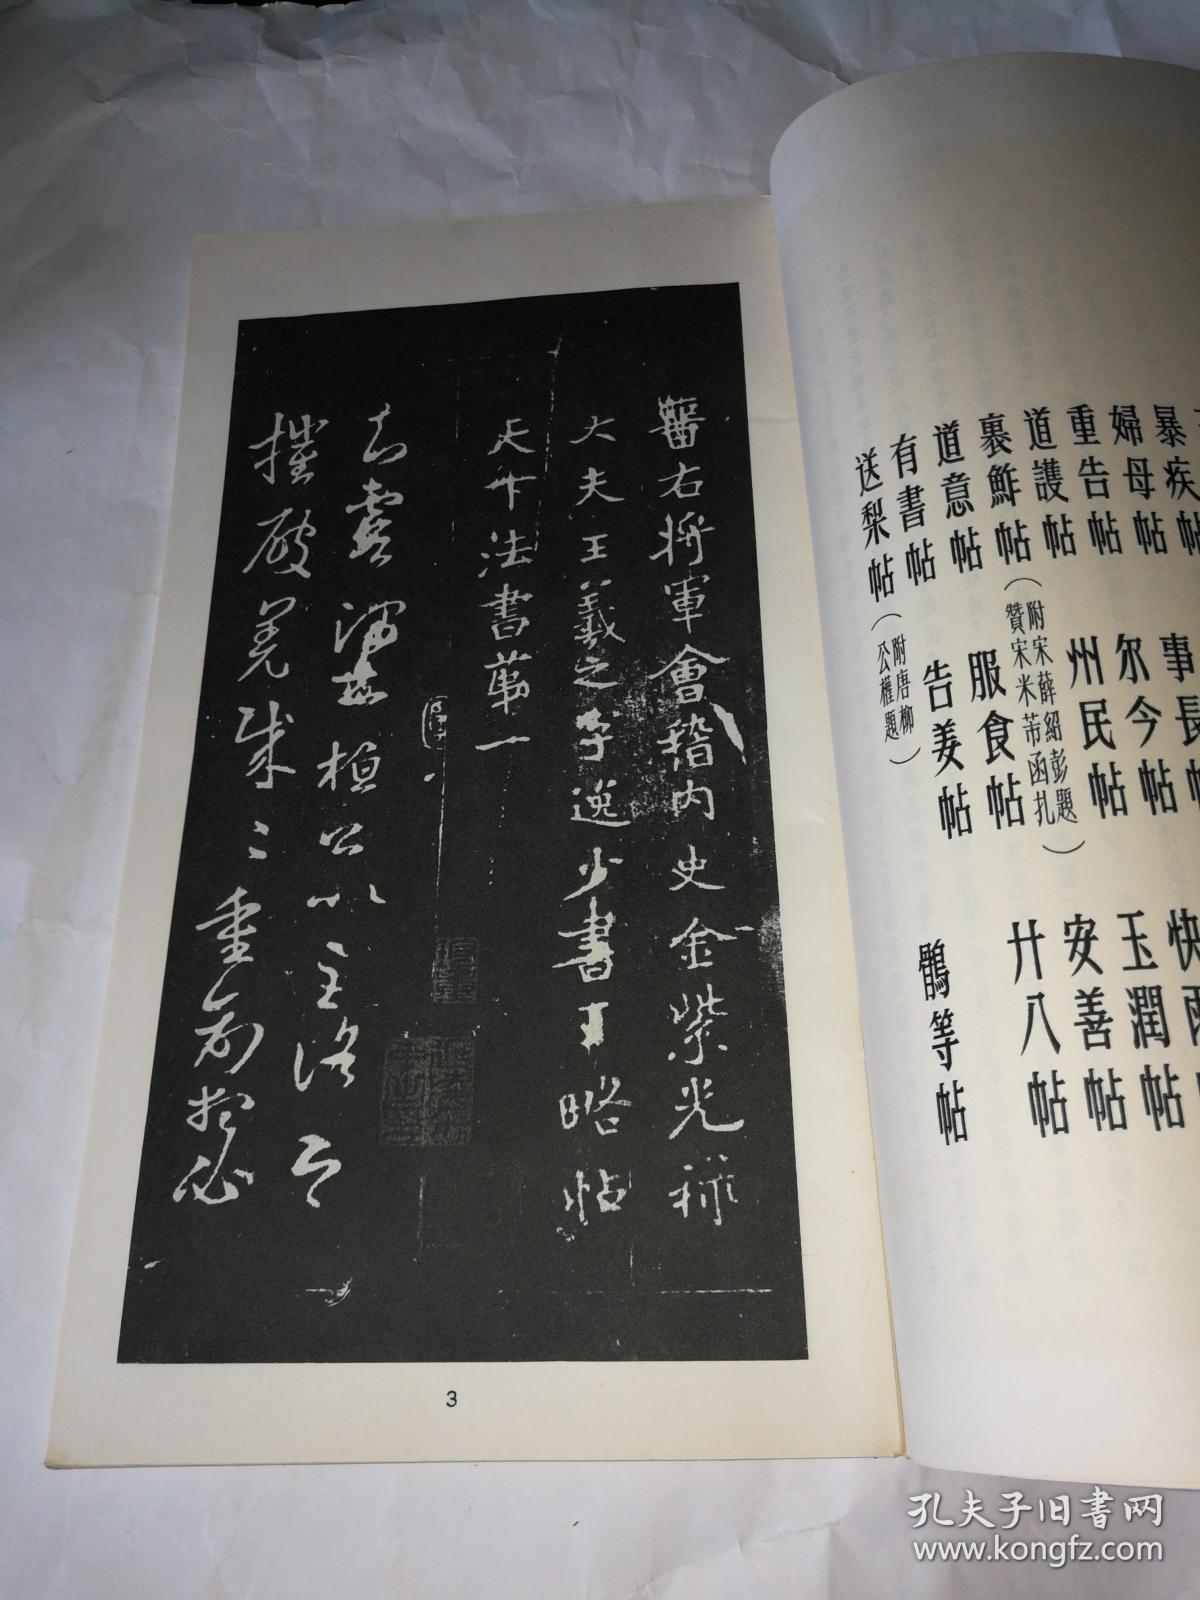 晉右將軍會稽內史金紫光祿
大夫王羲之字逸少書王略帖
天下法書第一
知虞帥書桓公以至洛即
摧破羌賊〻重創想必
3
暴疾帖
婦母帖 事長帖 快雨
重告帖 尔今帖 玉潤帖
道護帖 州民帖 安善帖
裹鮓帖（附宋薛紹彭題贊宋米芾函扎）
道意帖 服食帖 廿八帖
有書帖 告姜帖 鶻等帖
送梨帖（附唐柳公權題）
孔夫子旧书网
www.kongfz.com